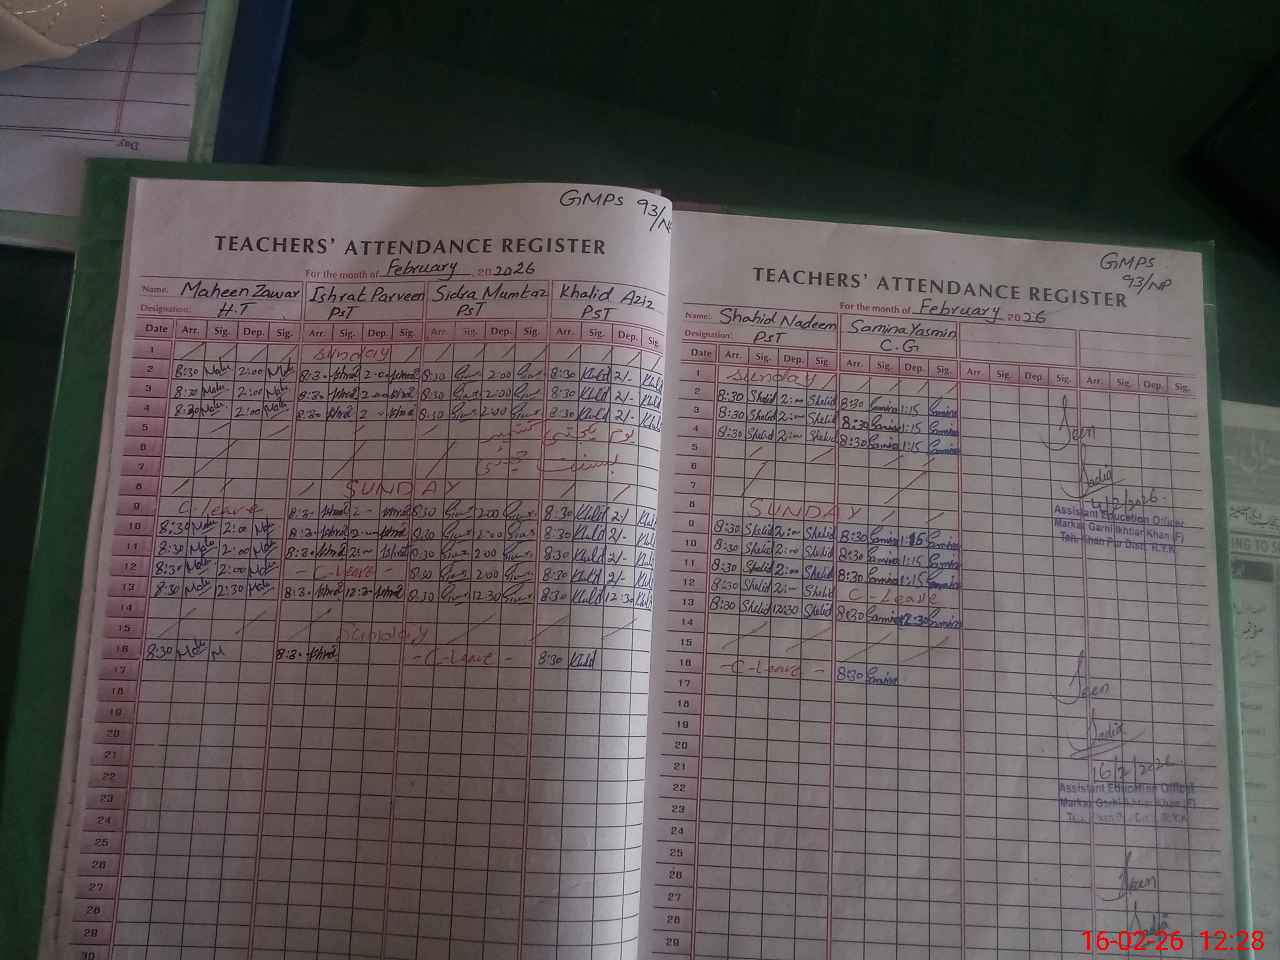 GMPS 93/N
TEACHERS' ATTENDANCE REGISTER
For the month of February 20 2026
Name. Maheen Zawar Ishrat Parveen Sidra Mumtaz Khalid Aziz
Designation: H.T PST PST PST
Date Arr. Sig. Dep. Sig. Arr. Sig. Dep. Sig. Arr. Sig. Dep. Sig. Arr. Sig. Dep. Sig.
1 Sunday
2 8:30 2:00 8:30 2:00 8:30 2:00 8:30 Khld 2/-
3 8:30 2:00 8:30 2:00 8:30 2:00 8:30 Khld 2/-
4 8:30 2:00 8:30 2:00 8:30 2:00 8:30 Khld 2/-
5 یوم یکجہتی کشمیر
6
7 بسنت چھٹی
8 SUNDAY
9 C-leave 8:30 2:00 8:30 Khld 2/-
10 8:30 2:00 8:30 2:00 8:30 Khld 2/-
11 8:30 2:00 8:30 2:00 8:30 2:00 8:30 Khld 2/-
12 8:30 2:00 - C-leave - 8:30 2:00 8:30 Khld 2/-
13 8:30 2:30 8:30 12:30 8:30 12:30 8:30 Khld 12:30
14
15 Sunday
16 8:30 8:30 - C-leave - 8:30 Khld
17
18
19
20
21
22
23
24
25
26
27
28
29
30
GMPS
93/NP
TEACHERS' ATTENDANCE REGISTER
For the month of February 20 26
Name: Shahid Nadeem Samina Yasmin
Designation: PST C.G
Date Arr. Sig. Dep. Sig. Arr. Sig. Dep. Sig. Arr. Sig. Dep. Sig. Arr. Sig. Dep. Sig.
1 Sunday
2 8:30 Shahid 2:00 Shahid 8:30 Samina 1:15 Samina
3 8:30 Shahid 2:00 Shahid 8:30 Samina 1:15 Samina
4 8:30 Shahid 2:00 Shahid 8:30 Samina 1:15 Samina
5
6
7
8 SUNDAY
9 8:30 Shahid 2:00 Shahid 8:30 Samina 1:15 Samina
10 8:30 Shahid 2:00 Shahid 8:30 Samina 1:15 Samina
11 8:30 Shahid 2:00 Shahid 8:30 Samina 1:15 Samina
12 8:30 Shahid 2:00 Shahid C-Leave
13 8:30 Shahid 12:30 Shahid 8:30 Samina 12:30 Samina
14
15
16 -C-leave- 8:30 Samina
17
18
19
20
21
22
23
24
25
26
27
28
29
Seen
Sadia
4/2/2026.
Assistant Education Officer
Markaz Garhi Ikhtiar Khan (F)
Teh. Khan Pur Distt. R.Y.K
Seen
Sadia
16/2/2026
Assistant Education Officer
Markaz Garhi Ikhtiar Khan (F)
Seen
Sadia
Day
16-02-26 12:28